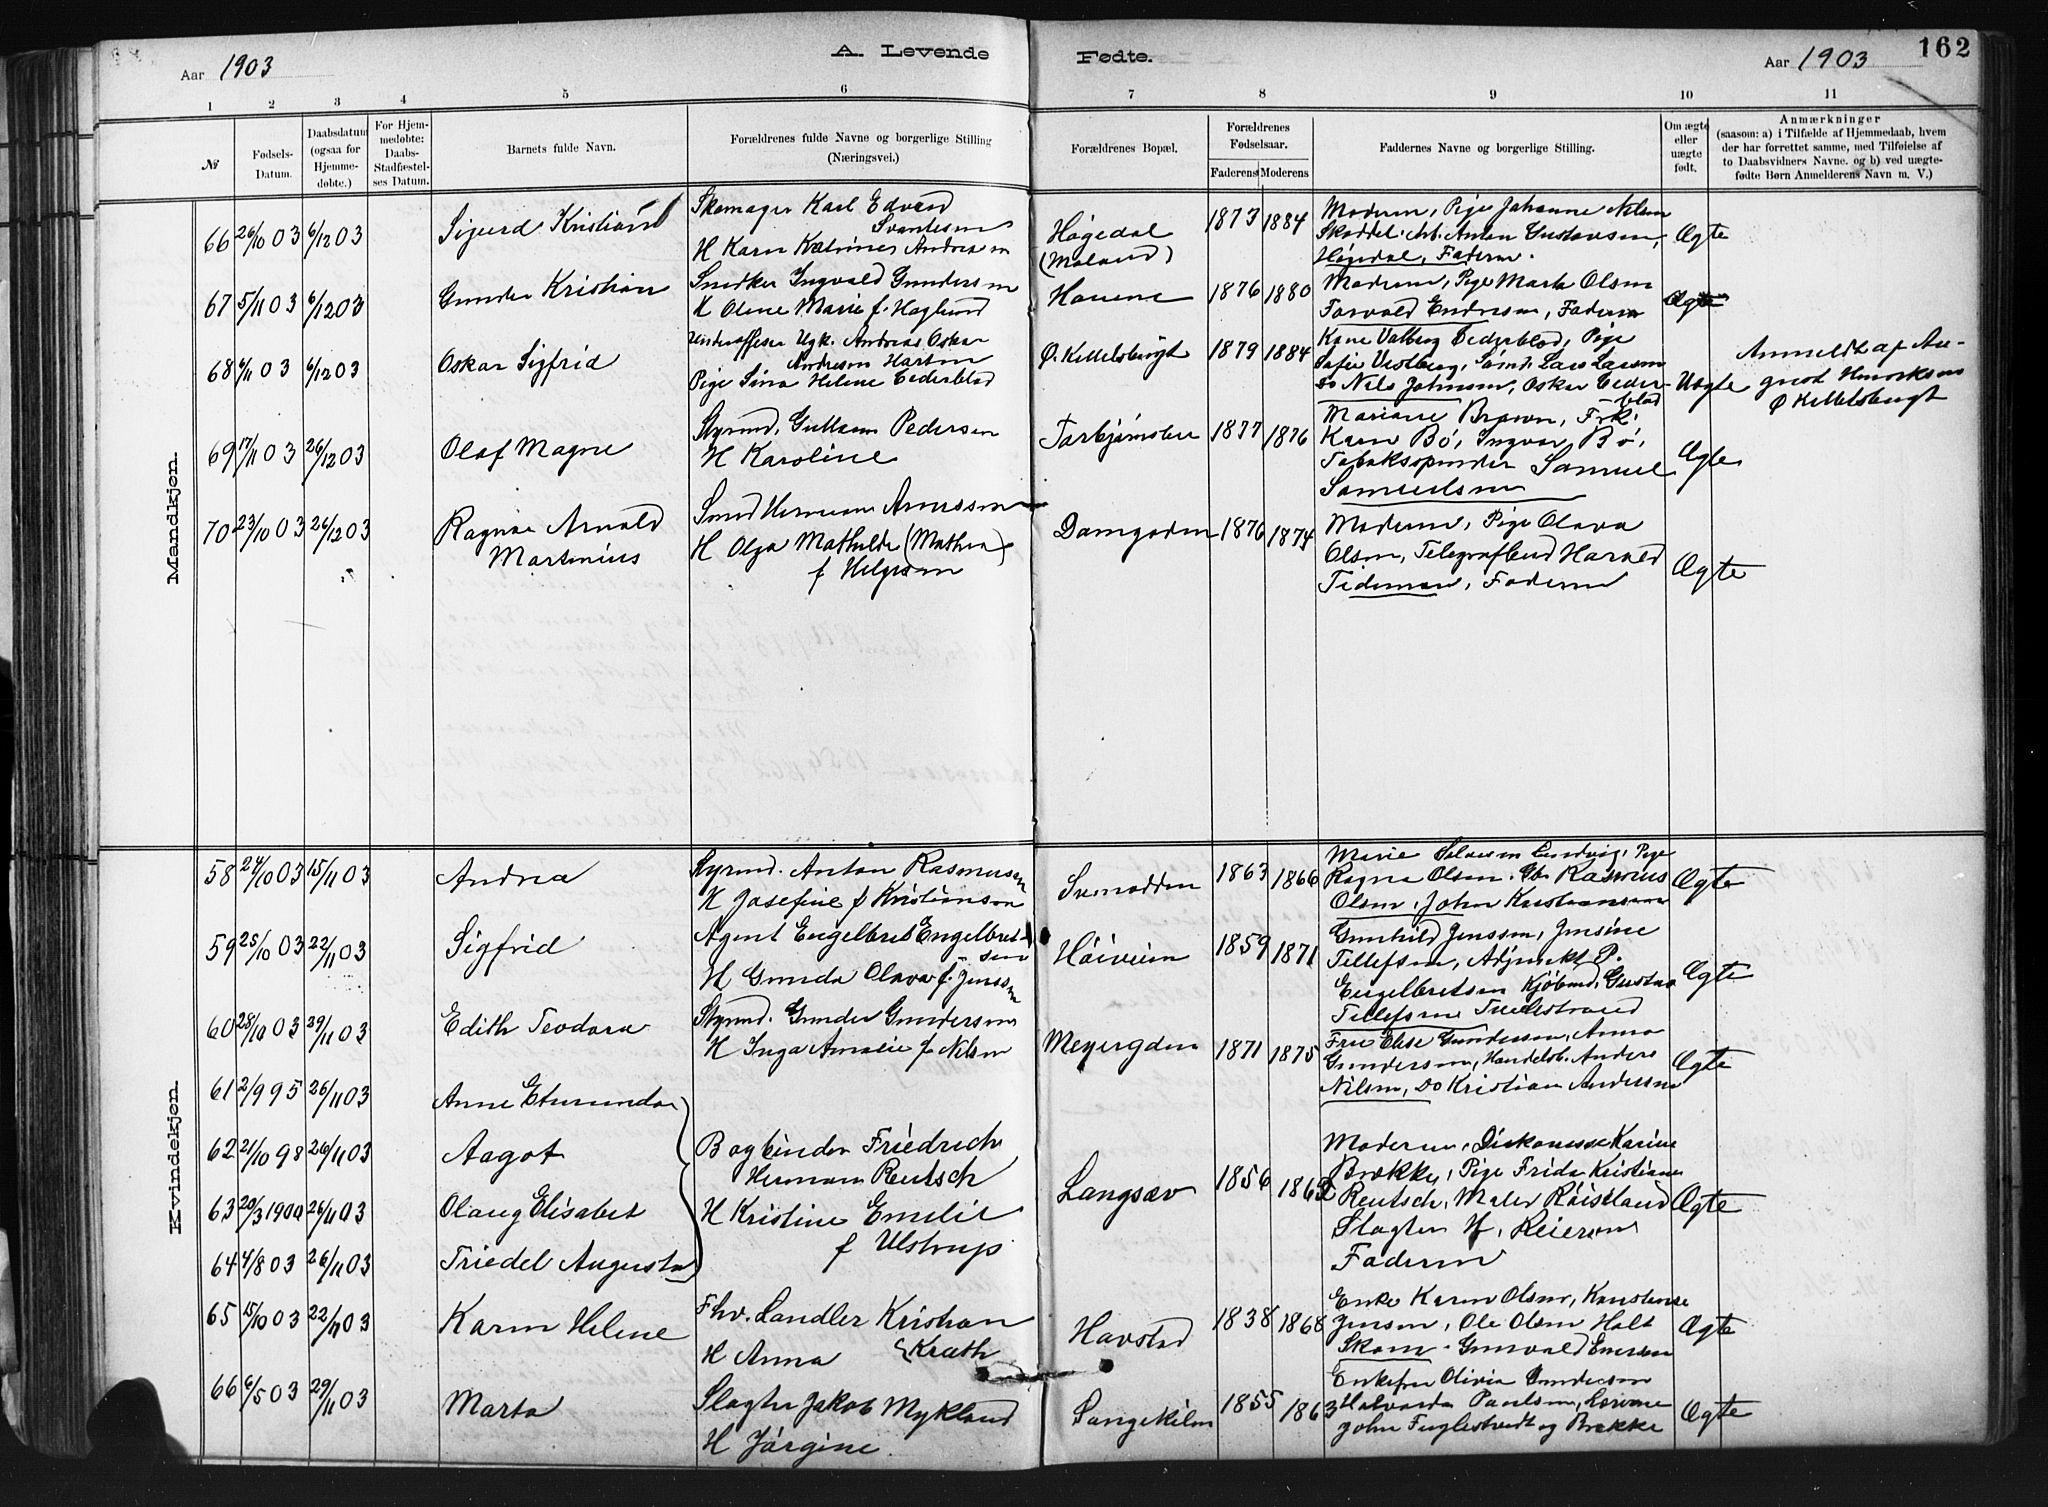 Aar 1903
A. Levende Fødte.
Aar 1903
162
1 2 3 4 5 6 7 8 9 10 11
№
Fødsels-Datum.
Daabsdatum (ogsaa for Hjemme-døbte.)
For Hjem-medøbte: Daabs-Stadfæstel-ses Datum.
Barnets fulde Navn.
Forældrenes fulde Navne og borgerlige Stilling (Næringsvei.)
Forældrenes Bopæl.
Forældrenes Fødselsaar.
Faderens Moderens
Faddernes Navne og borgerlige Stilling.
Om ægte eller uægte født.
Anmærkninger
(saasom: a) i Tilfælde af Hjemmedaab, hvem
der har forrettet samme, med Tilføielse af
to Daabsvidners Navne. og b) ved uægte-
fødte Børn Anmelderens Navn m. V.)
Mandkjøn.
66 26/10 03 6/12 03 Sigurd Kristian
Skomager Karl Edvard
Svantesen
H Karn Katrines Andreasen
Høgedal
(Moland)
1873 1884
Moderen, Pige Johanne Nilsen
Arb. Anton Gustavsen,
Høgedal, Faderen.
Ægte
67 5/11 03 6/12 03 Gunder Kristian
Snedker Ingvald Gundersen
H Olene Marie f. Haglund
Hauene
1876 1880
Moderen, Pige Marta Olsen
Torvald Endresen, Faderen
Ægte
68 6/12 03 Oskar Sigfrid
Andreas Oskar
Andresen
Pige Sina Helene Cederblad
Ø. Kittelsbugt
1879 1884
Kone Valborg Cederblad, Pige
Sofie Vestberg, Lars Larsen
Do Nils Johnsen, Oskar Ceder-
blad
Uægte
Anmeldt af Au-
gust Henriksen
Ø Kittelsbugt
69 17/11 03 26/12 03 Olaf Magne
Styrmd. Guttorm Pedersen
H Karoline
1877 1876
Mariane Brown, Frk.
Karen Bö, Ingvar Bö,
Tobakspinder Samuel
Samuelsen
Ægte
70 23/10 03 26/12 03 Ragnar Arnold
Martinius
Smed Herman Anussen
H Olga Mathilde (Mathea)
f Helgesen
Damgaden
1876 1874
Moderen, Pige Olava
Olsen, Telegrafbud Harald
Tideman, Faderen
Ægte
Kvindekjøn.
58 24/10 03 15/11 03 Andrea
Styrmd. Anton Rasmusen
H Josefine f Kristiansen
Svenodden
1863 1866
Marie Pige
Ragna Olsen. Rasmus
Olsen, Johan Kristiansen
Ægte
59 25/10 03 22/11 03 Sigfrid
Agent Engelbret Engelbret-
sen
H Gunda Olava f. Jenssen
Höiveien
1859 1871
Gunhild Jenssen, Jensine
Tellefsen, Adjunkt P.
Engelbretsen Kjöbmd. Gustav
Tellefsen Tvedestrand
Ægte
60 28/10 03 29/11 03 Edith Teodora
Styrmd. Gunder Gundersen
H Inga Amalie f Nilsen
Meyergden
1871 1875
Frue Elise Gundersen, Anna
Gundersen, Handelsb. Anders
Nilsen, Do Kristian Andersen
Ægte
61 2/9 95 26/11 03 Anne
62 21/10 98 26/11 03 Aagot
63 20/3 1900 26/11 03 Olaug Elisabet
64 4/8 03 26/11 03 Friedel Augusta
Bogbinder Friedrich
Herman Reutsch
H Kristine Emelie
f Ulstrup
Langsæv
1856 1862
Moderen, Diakonesse Karine
Brække, Pige Frida Kristiane
Reutsch, Maler Röiseland
Slagter H. Reiersen
Faderen
Ægte
65 15/10 03 22/11 03 Karen Helene
Fhv. Landler Kristian
H Anna Krath
Havstad
1838 1868
Enke Karen Olsen, Konstanse
Jensen, Ole Olsen Holt
Gunvald
Ægte
66 6/5 03 29/11 03 Marta
Slagter Jakob Mykland
H Jörgine
Songekilen
1855 1863
Enkefru Olivia Gundersen
Halvarda Paulsen,
John Fuglestvedt og Brække
Ægte